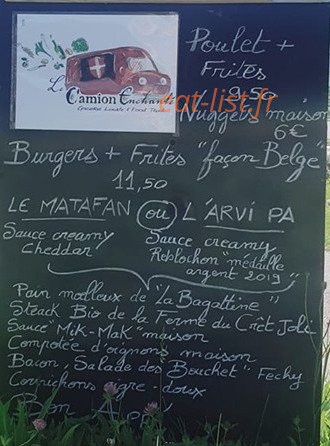 Le
Camion Enchanté
Poulet +
Frites
9,50
eat-list.fr
Nuggets maison
6€
Burgers + Frites "façon Belge"
11,50
LE MATAFAN ou L'ARVI PA
Sauce creamy
Cheddar
Sauce creamy
Reblochon "médaille
argent 2019"
Pain moelleux de "La Bagattine"
Steak Bio de la Ferme du Crêt Joli
Sauce "Mik-Mak" maison
Compotée d'oignons maison
Bacon, Salade des "Bouchet" Fechy
Cornichons aigre-doux
Bon App'